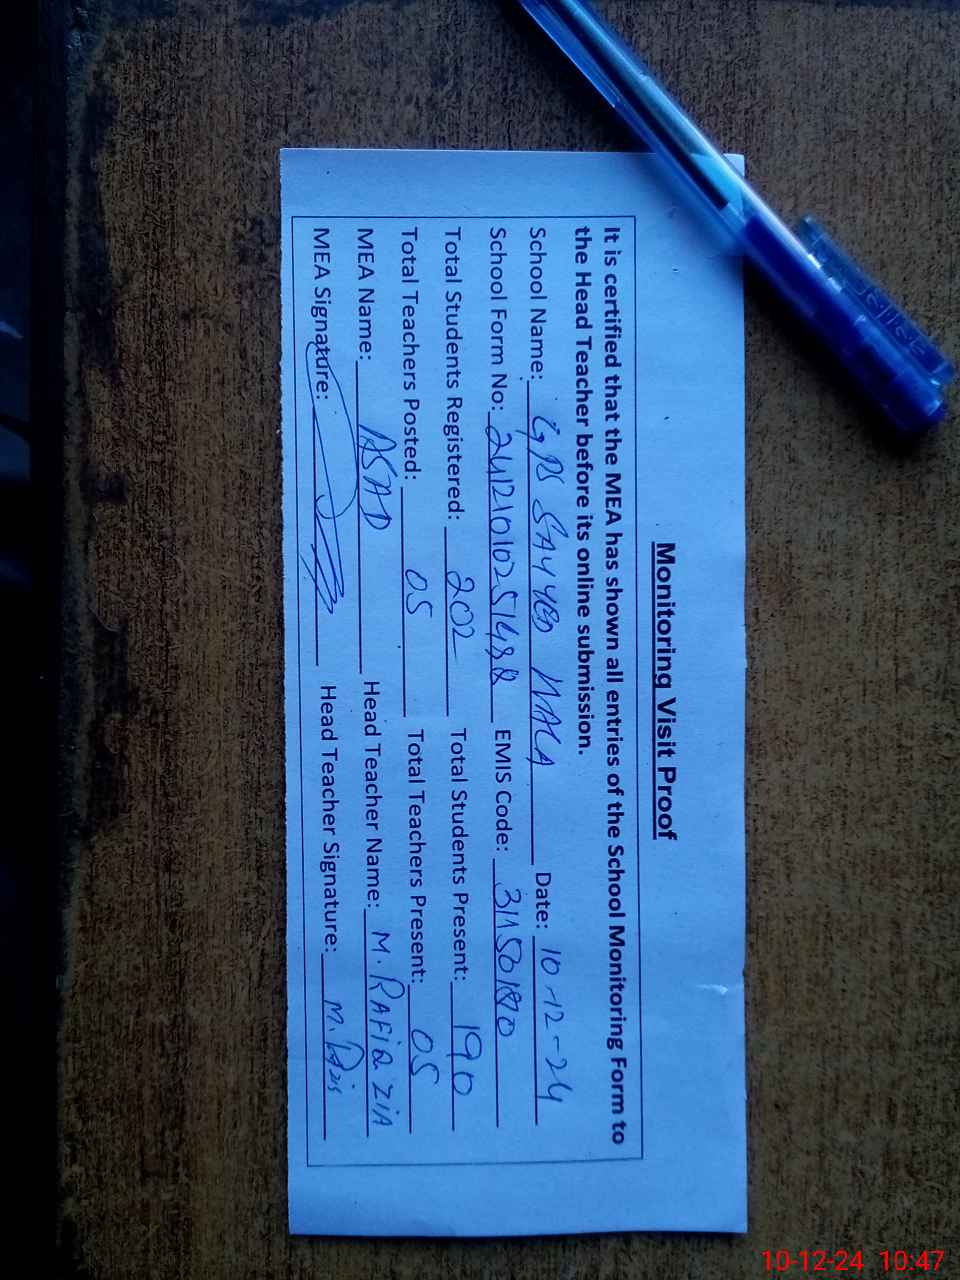 Monitoring Visit Proof
It is certified that the MEA has shown all entries of the School Monitoring Form to
the Head Teacher before its online submission.
School Name: GPS SAYYED WALA Date: 10-12-24
School Form No: EMIS Code: 31150180
Total Students Registered: 202 Total Students Present: 190
Total Teachers Posted: 05 Total Teachers Present: 05
MEA Name: ASAD Head Teacher Name: M. RAFIQ ZIA
MEA Signature: Head Teacher Signature: M.
10-12-24 10:47